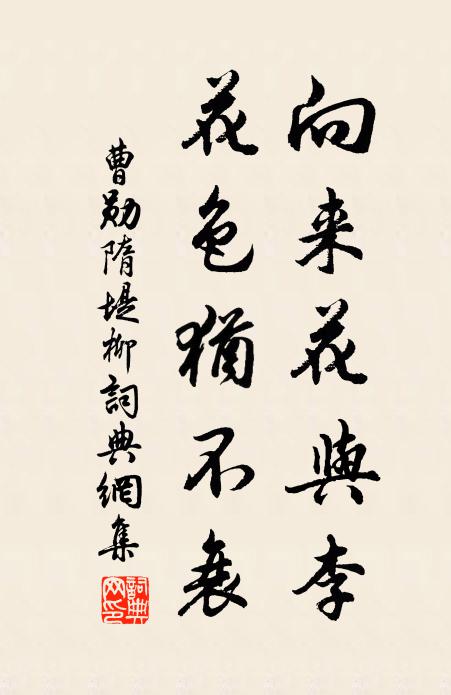 向来花與李
花色猶不衰
曹勛隋堤柳詞典網集
詞典网印